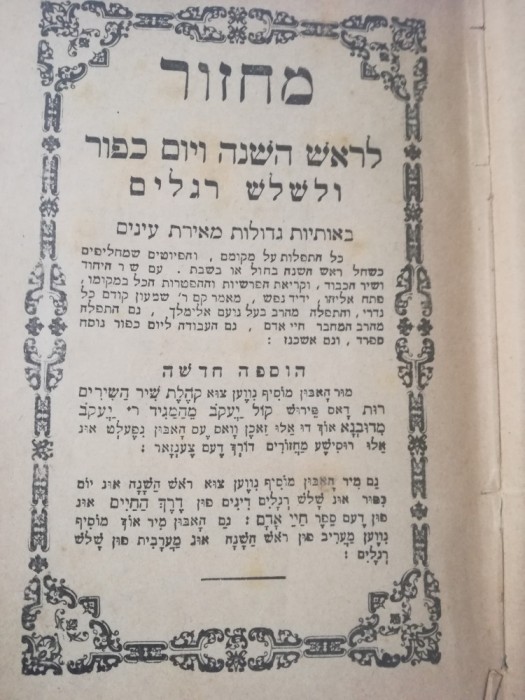 מחזור
לראש השנה ויום כפור
ולשלש רגלים
באותיות גדולות מאירת עינים
כל התפלות על מקומם , והפיוטים שמחליפים
כשחל ראש השנה בחול או בשבת . עם שיר היחוד
ושיר הכבוד , וקריאת הפרשיות וההפטרות הכל במקומו ,
פתח אליהו , ידיד נפש , מאמר קם ר' שמעון קודם כל
נדרי , והתפלה מהרב בעל נועם אלימלך , גם התפלה
מהרב המחבר חיי אדם , גם העבודה ליום כפור נוסח
ספרד , וגם אשכנז :
הוספה חדשה
מיר האבון מוסיף גווען צוא קהלת שיר השירים
רות דאס פירוש קול יעקב מהמגיד ר' יעקב
מדובנא אוך דו אלו זאכן וואס עס האבון געפעלט אונ
אלו רוסישע מחזורים דורך דעם צענזאר :
גם מיר האבון מוסיף גווען צוא ראש השנה אונ יום
כפור אונ שלש רגלים דינים פון דרך החיים אונ
פון דעם ספר חיי אדם : גם האבון מיר אוך מוסיף
גווען מעריב פון ראש השנה אונ מערבית פון שלש
רגלים :